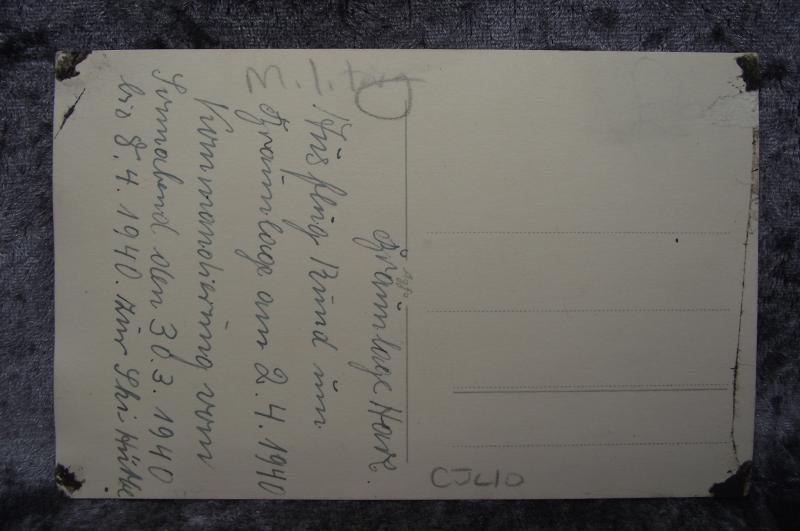 Militär
Braunlage Harz.
Ausflug Rund um
Braunlage am 2.4.1940
Kommandierung vom
Sonnabend den 30.3.1940
bis 8.4.1940. zur Ski Hütte
Agfa
CJL10